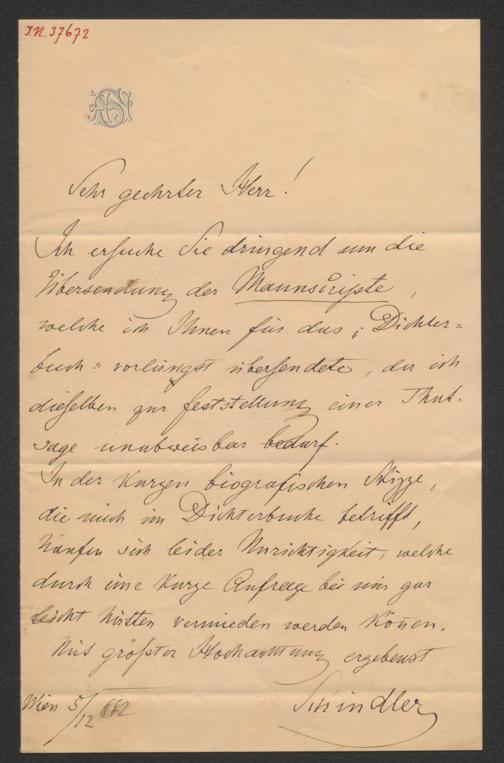 I.N. 37672
Sehr geehrter Herr!
Ich ersuche Sie dringend um die
Übersendung der Manuscripte,
welche ich Ihnen für das „Dichter=
buch" vorlängst übersendete, da ich
dieselben zur Feststellung einer That-
sage unabweisbar bedarf.
In der kurzen biografischen Skizze,
die mich im Dichterbuche betrifft,
häufen sich leider Unrichtigkeit, welche
durch eine kurze Anfrage bei mir gar
leicht hätten vermieden werden können.
Mit größter Hochachtung ergebenst
Schindler
Wien 5/12